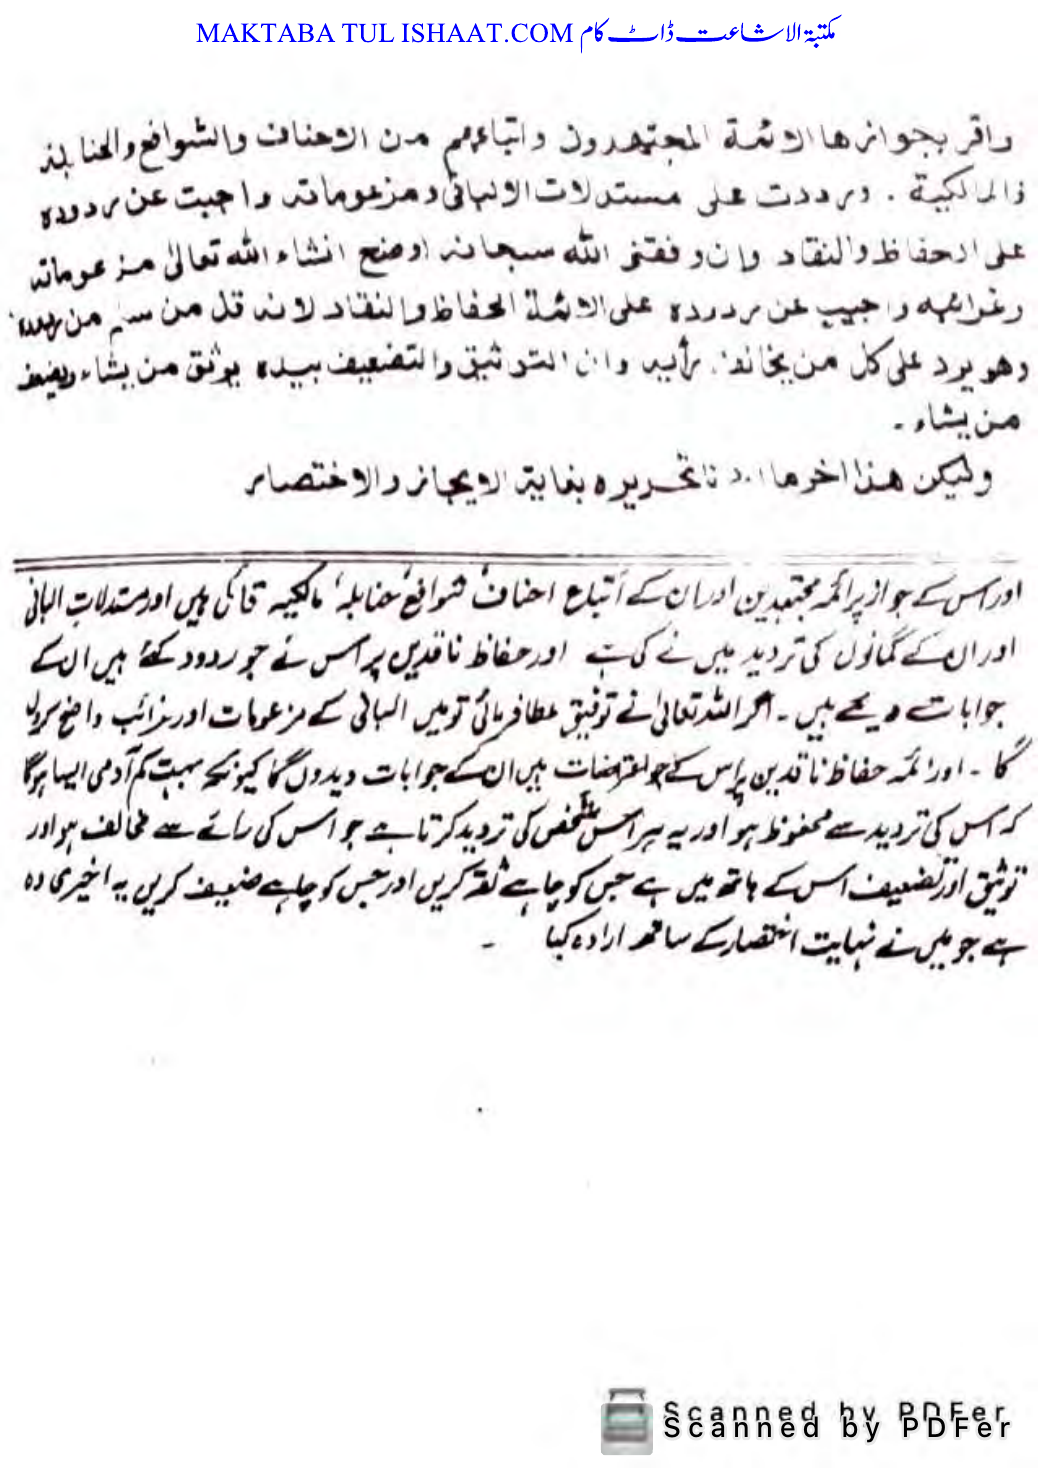 MAKTABA TUL ISHAAT.COM مکتبۃ الاشاعت ڈاٹ کام
واقر بجوازها الائمة المجتهدون واتباعهم من الاحناف والشوافع والحنابلة
والمالكية . ورددت على مستدلات الالبانی ومزعوماته واجبت عن ردوده
على الحفاظ والنقاد وان وفقنی الله سبحانه اوضح انشاء الله تعالىٰ مزعوماته
وغرائبه واجيب عن ردوده على الائمة الحفاظ والنقاد لانه قل من سلم من ردوده
وهو يرد على كل من يخالف برأيه وان التوثيق والتضعيف بيده يوثق من يشاء ويضعف
من يشاء ۔
وليكن هذا اخر ما اردنا تحريره بغاية الايجاز والاختصار
اور اس کے جواز پر ائمہ مجتہدین اور ان کے اتباع احناف شوافع حنابلہ مالکیہ قائل ہیں اور مستدلات البانی
اور ان کے گمانوں کی تردید میں نے کی ہے اور حفاظ ناقدین پر اس نے جو ردود کئے ہیں ان کے
جوابات دیئے ہیں ۔ اگر اللہ تعالیٰ نے توفیق عطا فرمائی تو میں البانی کے مزعومات اور غرائب واضح کردوں
گا ۔ اور ائمہ حفاظ ناقدین پر اس کے جو اعتراضات ہیں ان کے جوابات دیدوں گا کیونکہ بہت کم آدمی ایسا ہوگا
کہ اس کی تردید سے محفوظ ہو اور یہ ہر اس شخص کی تردید کرتا ہے جو اس کی رائے سے مخالف ہو اور
توثیق اور تضعیف اس کے ہاتھ میں ہے جس کو چاہے ثقہ کریں اور جس کو چاہے ضعیف کریں یہ اخیری وہ
ہے جو میں نے نہایت اختصار کے ساتھ ارادہ کیا ۔
Scanned by PDFer
Scanned by PDFer